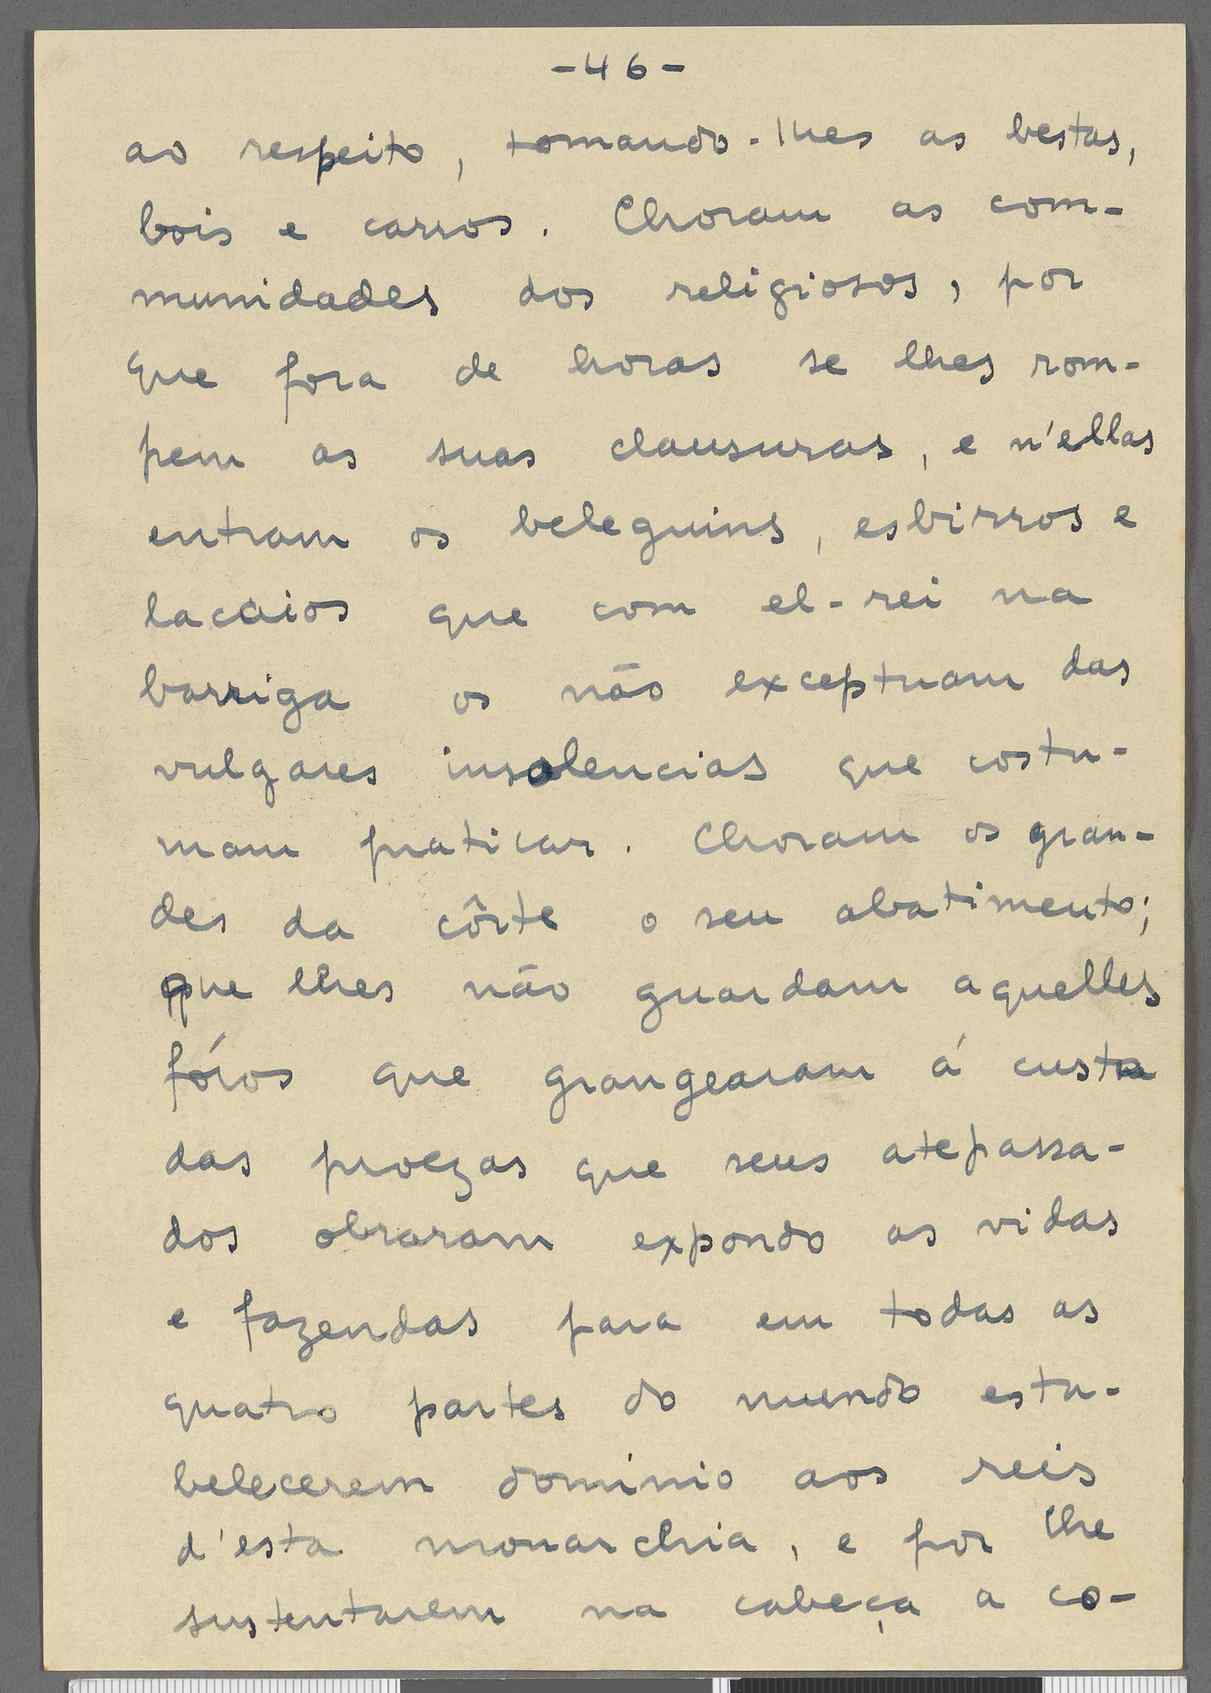 -46-
ao respeito, tomando-lhes as bestas,
bois e carros. Choram as com-
munidades dos religiosos, por
que fora de horas se lhes rom-
pem as suas clausuras, e n'ellas
entram os beleguins, esbirros e
lacaios que com el-rei na
barriga os não exceptuam das
vulgares insolencias que costu-
mam praticar. Choram os gran-
des da côrte o seu abatimento;
que lhes não guardam aquelles
fóros que grangearam á custa
das proezas que seus atepassa-
dos obraram expondo as vidas
e fazendas para em todas as
quatro partes do mundo esta-
belecerem dominio aos reis
d'esta monarchia, e por lhe
sustentarem na cabeça a co-